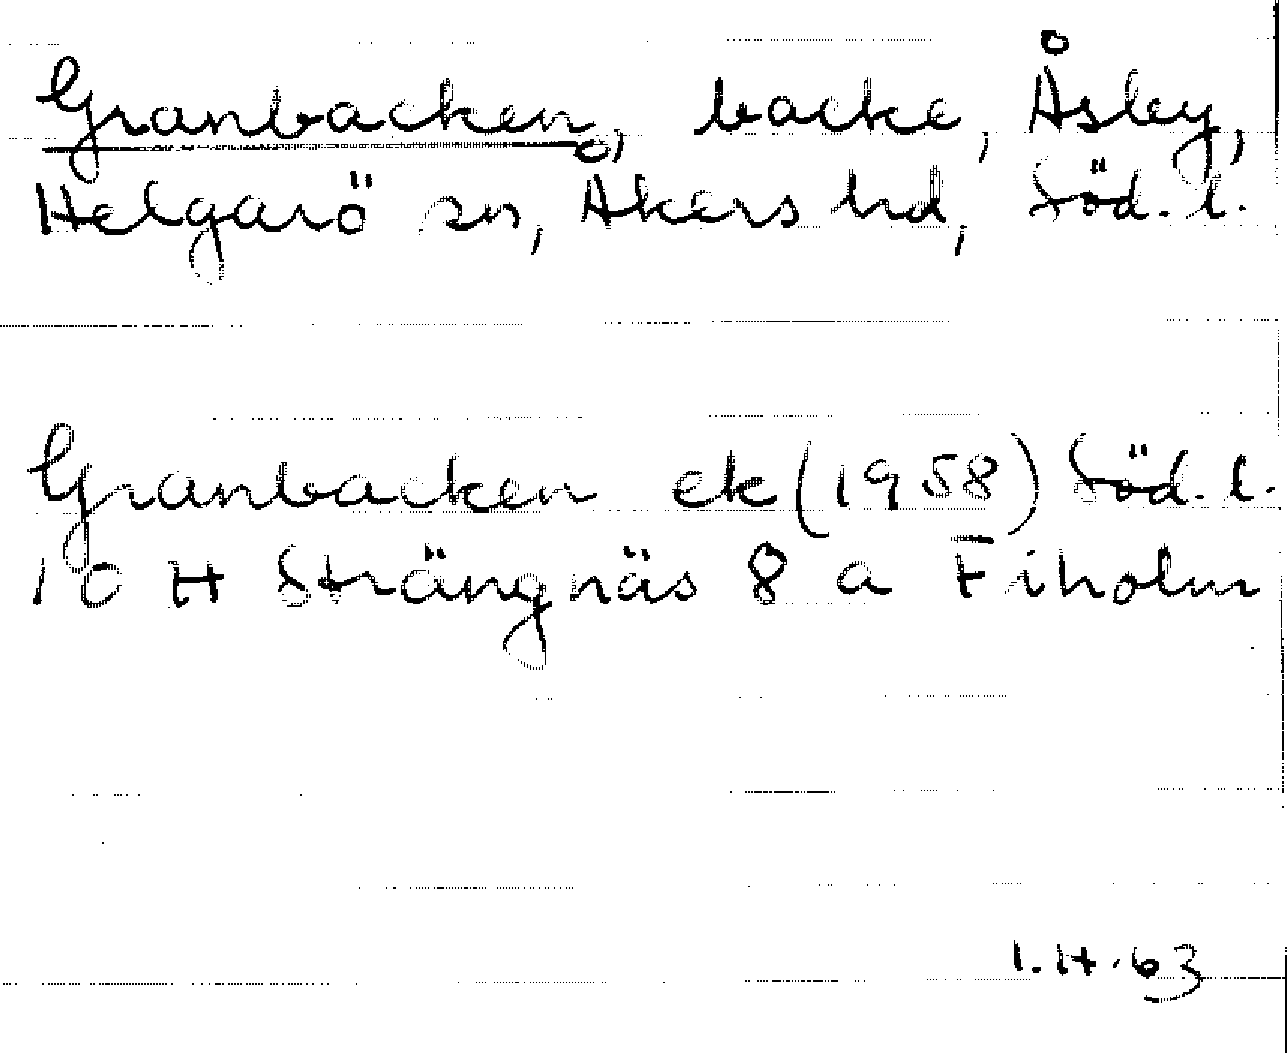 Granbacken, backe, Åsby,
Helgarö sn, Åkers hd, Söd. l.
Granbacken ek (1958) Söd. l.
10 H Strängnäs 8 a Fiholm
I. H. 63